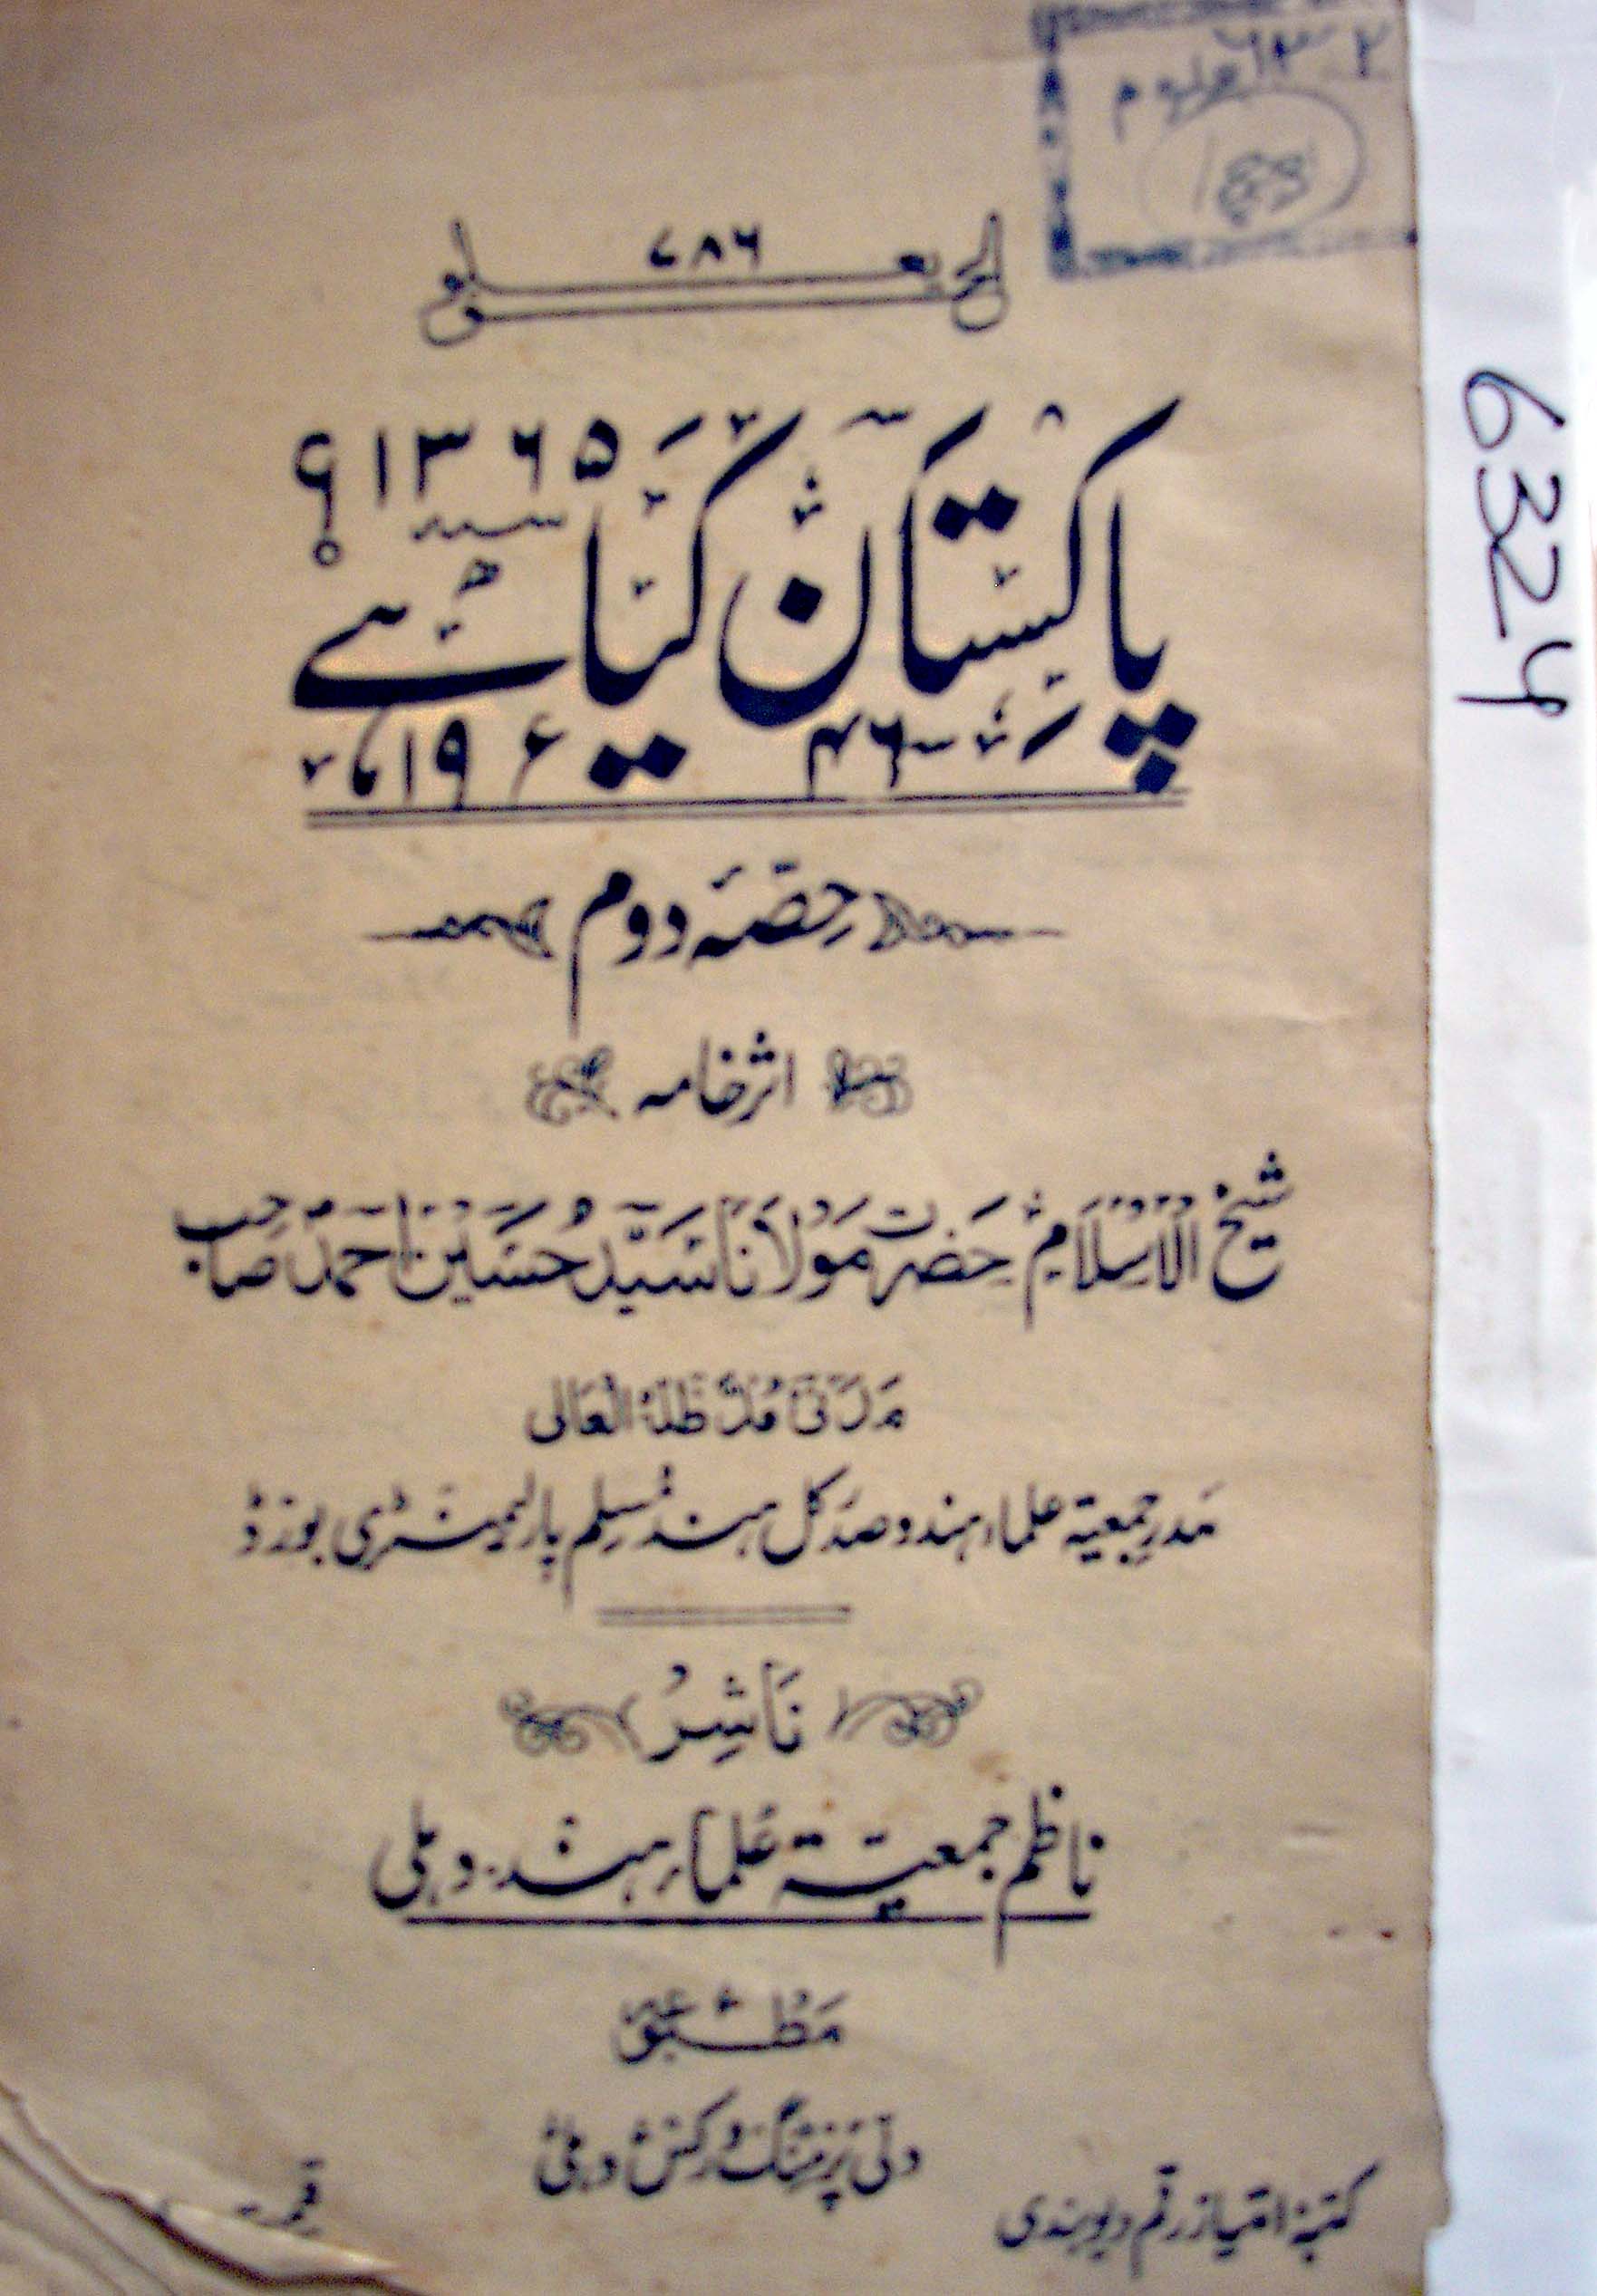 ۷۸۶
الحق یعلو
۱۳۶۵
پاکستان کیا ہے؟
۱۹۴۶ء
حصہ دوم
اثر خامہ
شیخ الاسلام حضرت مولانا سید حسین احمد صاحب
مدنی مدظلہ العالی
صدر جمعیۃ علماء ہند و صدر کل ہند مسلم پارلیمنٹری بورڈ
ناشر
ناظم جمعیۃ علماء ہند۔ دہلی
دلی پرنٹنگ ورکس دہلی
کتبہ امتیاز رقم دیوبندی
قیمت
6324